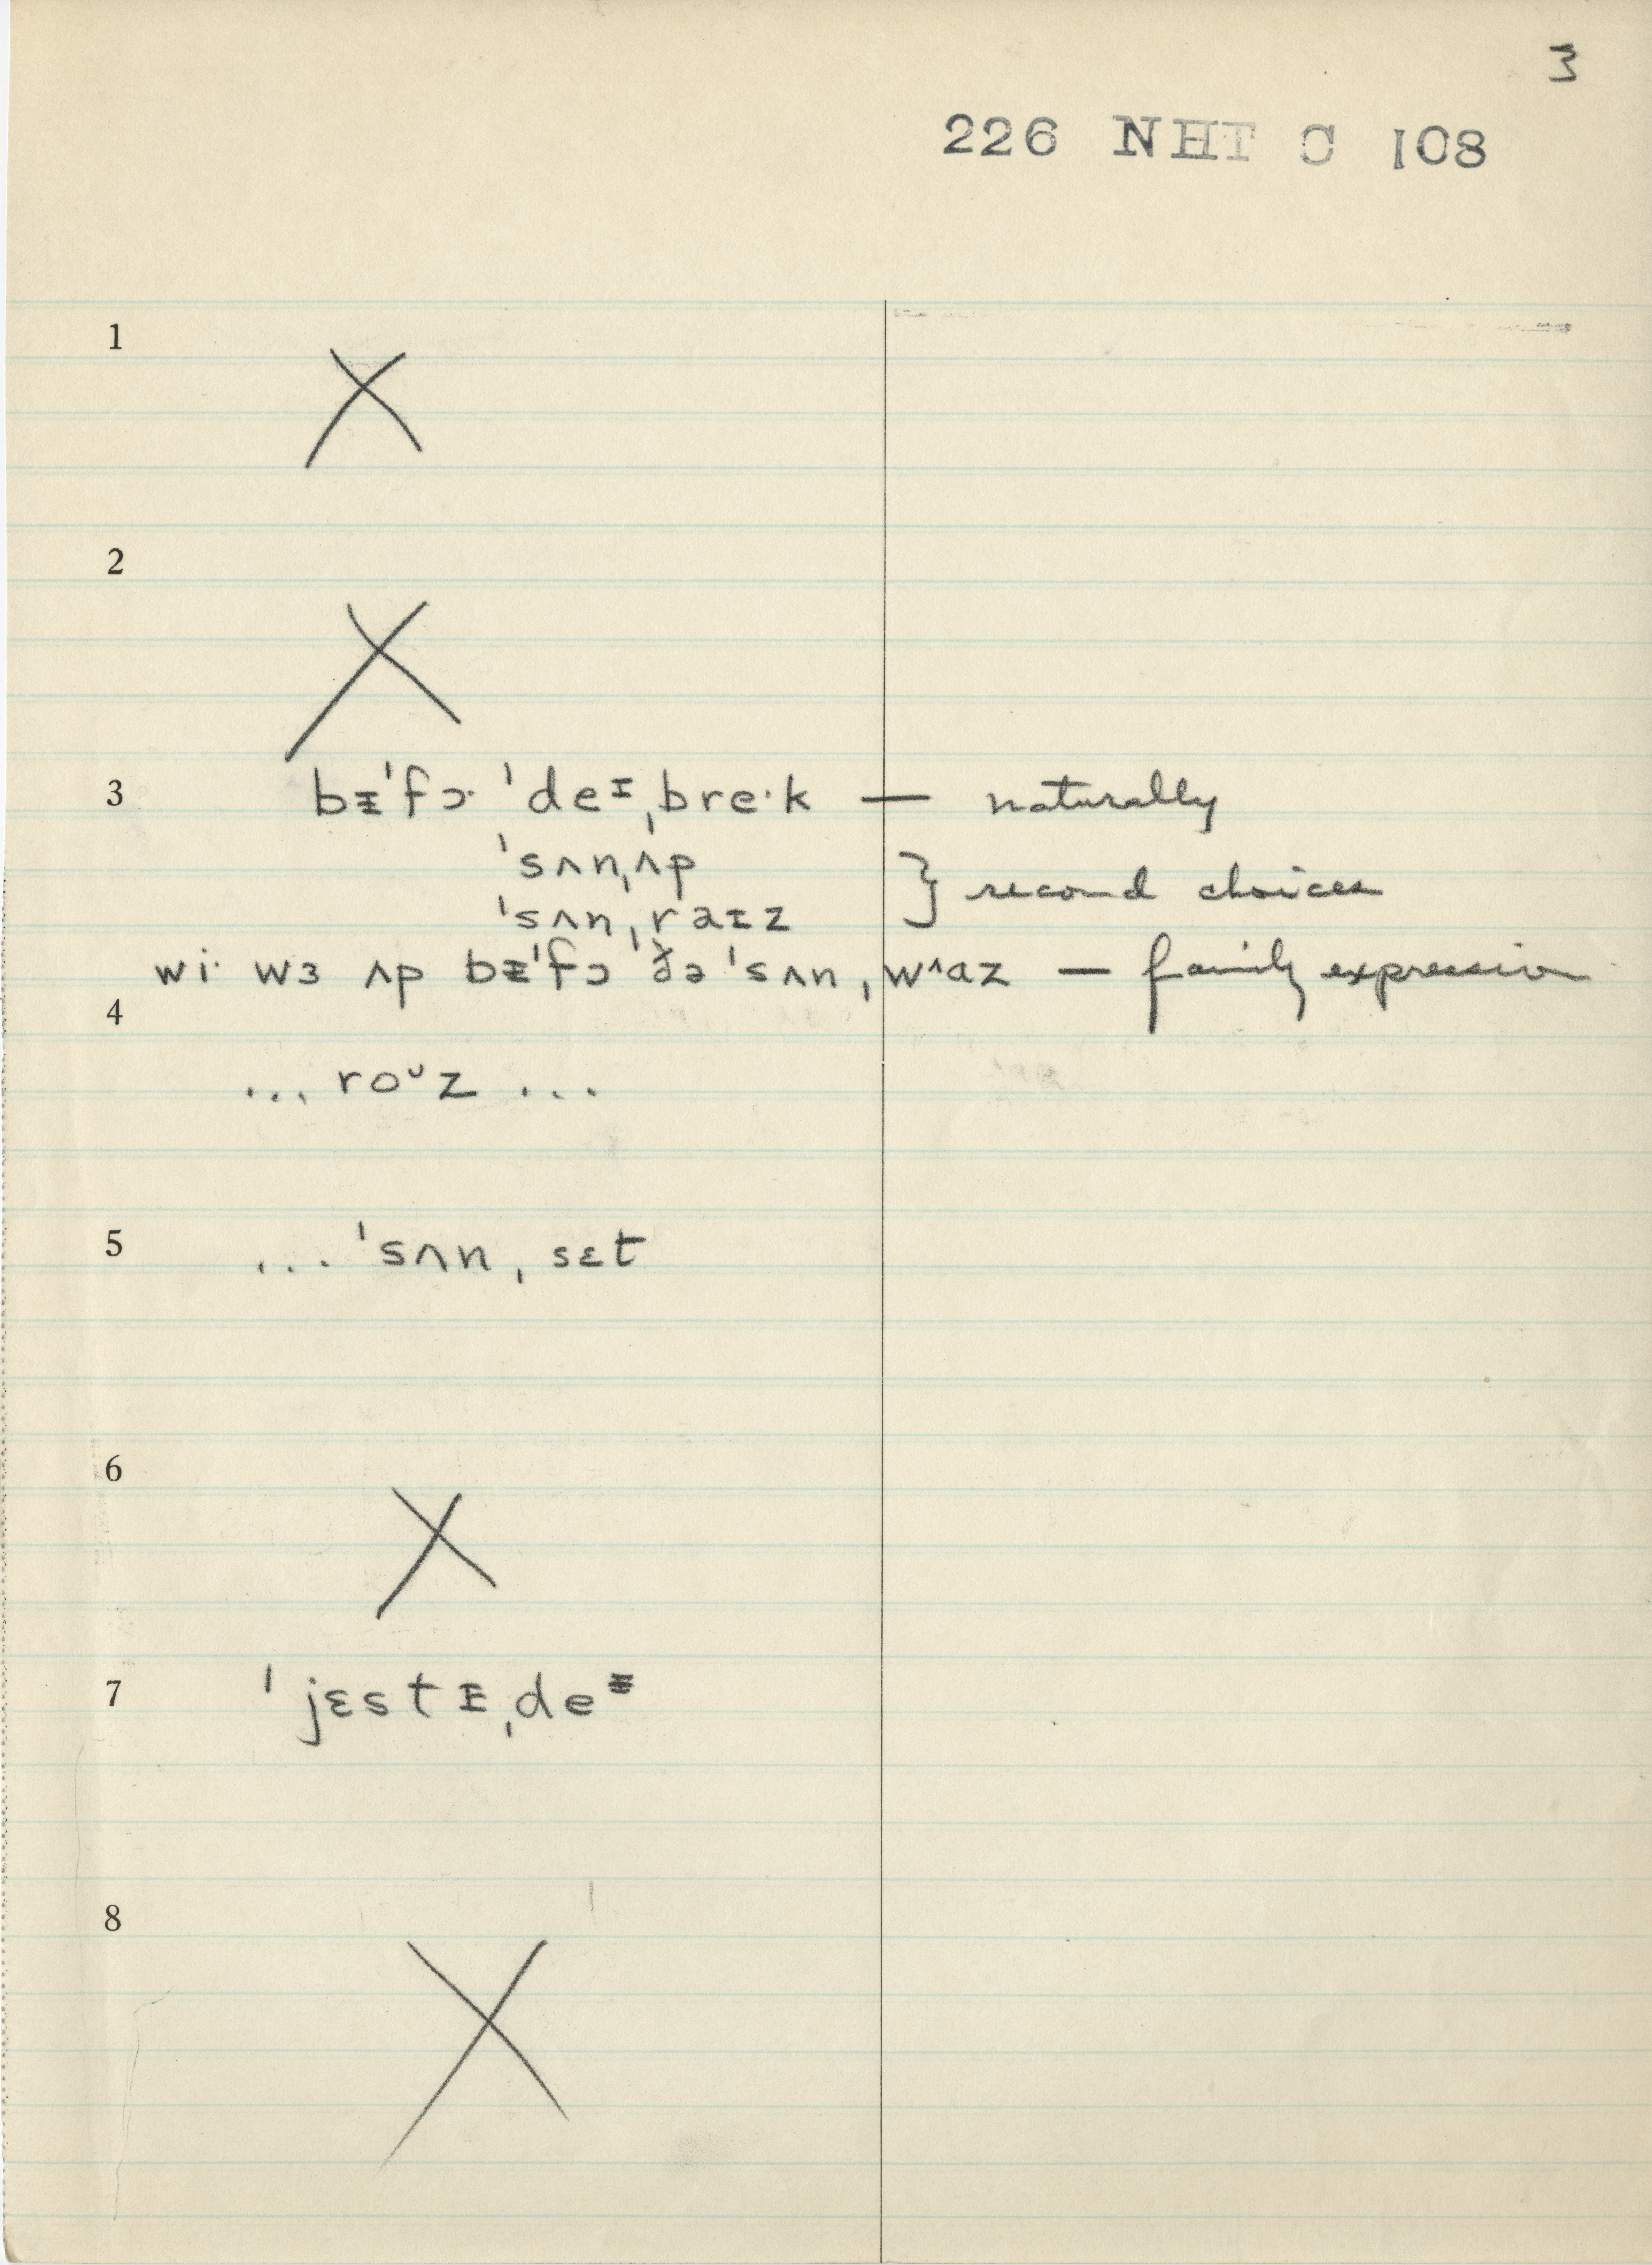 3
226 NHT C 108
1
2
3 bᵻˈfɔ· ˈdeᶦˌbre·k — naturally
ˈsʌnˌʌp
ˈsʌnˌraɪz } second choices
wi· wɜ ʌp bᵻˈfɔ ˈðə ˈsʌn ˌwʌɑz — family expression
4
... roᵘz ...
5 ... ˈsʌnˌsɛt
6
7 ˈjɛstᵻˌdeᵻ
8